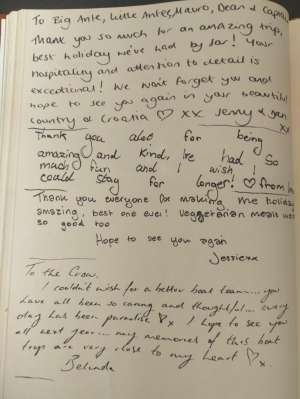 To Big Ante, little Ante, Mauro, Dean & Captain
Thank you so much for an amazing trip,
best holiday we've had by far! Your
hospitality and attention to detail is
exceptional! We wont forget you and
hope to see you again in your beautiful
country of Croatia ♡ xx Jenny & Jen
xx
Thank you alot for being
amazing and kind, I've had so
much fun and I wish I
could stay for longer! ♡ from
Thank you everyone for making me holiday
amazing, best one ever! Vegetarian meals were
so good too
Hope to see you again
Jessiexx
To the Crew,
I couldn't wish for a better boat team.... you
have all been so caring and thoughtful... every
day has been paradise ♡x I hope to see you
all next year... my memories of this boat
trip are very close to my heart ♡x
Belinda